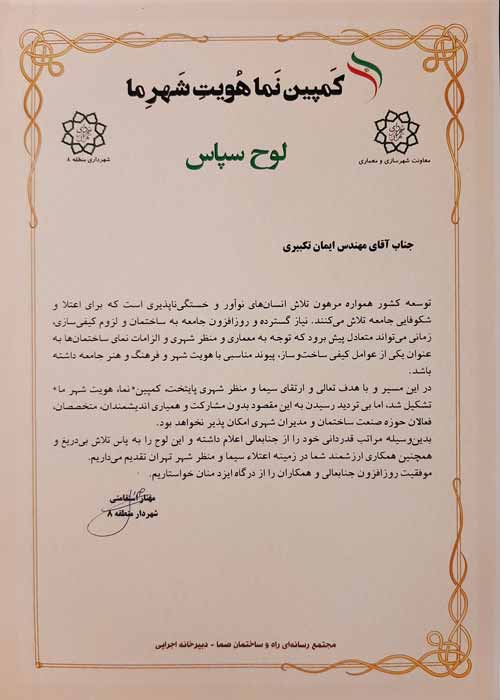 کَمپین نَما هُویتِ شَهرِ ما
لوح سپاس
شهرداری منطقه ۸
معاونت شهرسازی و معماری
جناب آقای مهندس ایمان تکبیری
توسعه کشور همواره مرهون تلاش انسان‌های نوآور و خستگی‌ناپذیری است که برای اعتلا و
شکوفایی جامعه تلاش می‌کنند. نیاز گسترده و روزافزون جامعه به ساختمان و لزوم کیفی‌سازی،
زمانی می‌تواند متعادل پیش برود که توجه به معماری و منظر شهری و الزامات نمای ساختمان‌ها به
عنوان یکی از عوامل کیفی ساخت‌وساز، پیوند مناسبی با هویت شهر و فرهنگ و هنر جامعه داشته
باشد.
در این مسیر و با هدف تعالی و ارتقای سیما و منظر شهری پایتخت، کمپین"نما، هویت شهر ما"
تشکیل شد، اما بی تردید رسیدن به این مقصود بدون مشارکت و همیاری اندیشمندان، متخصصان،
فعالان حوزه صنعت ساختمان و مدیران شهری امکان پذیر نخواهد بود.
بدین‌وسیله مراتب قدردانی خود را از جنابعالی اعلام داشته و این لوح را به پاس تلاش بی‌دریغ و
همچنین همکاری ارزشمند شما در زمینه اعتلاء سیما و منظر شهر تهران تقدیم می‌داریم.
موفقیت روزافزون جنابعالی و همکاران را از درگاه ایزد منان خواستاریم.
مهناز استقامتی
شهردار منطقه ۸
مجتمع رسانه‌ای راه و ساختمان صما - دبیرخانه اجرایی